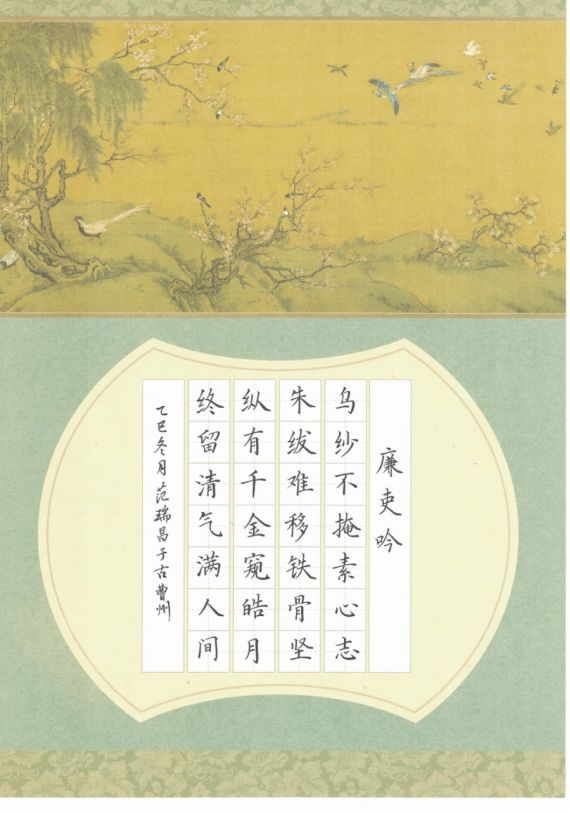 廉吏吟
乌纱不掩素心志
朱绂难移铁骨坚
纵有千金窥皓月
终留清气满人间
乙巳冬月范瑞昌于古曹州